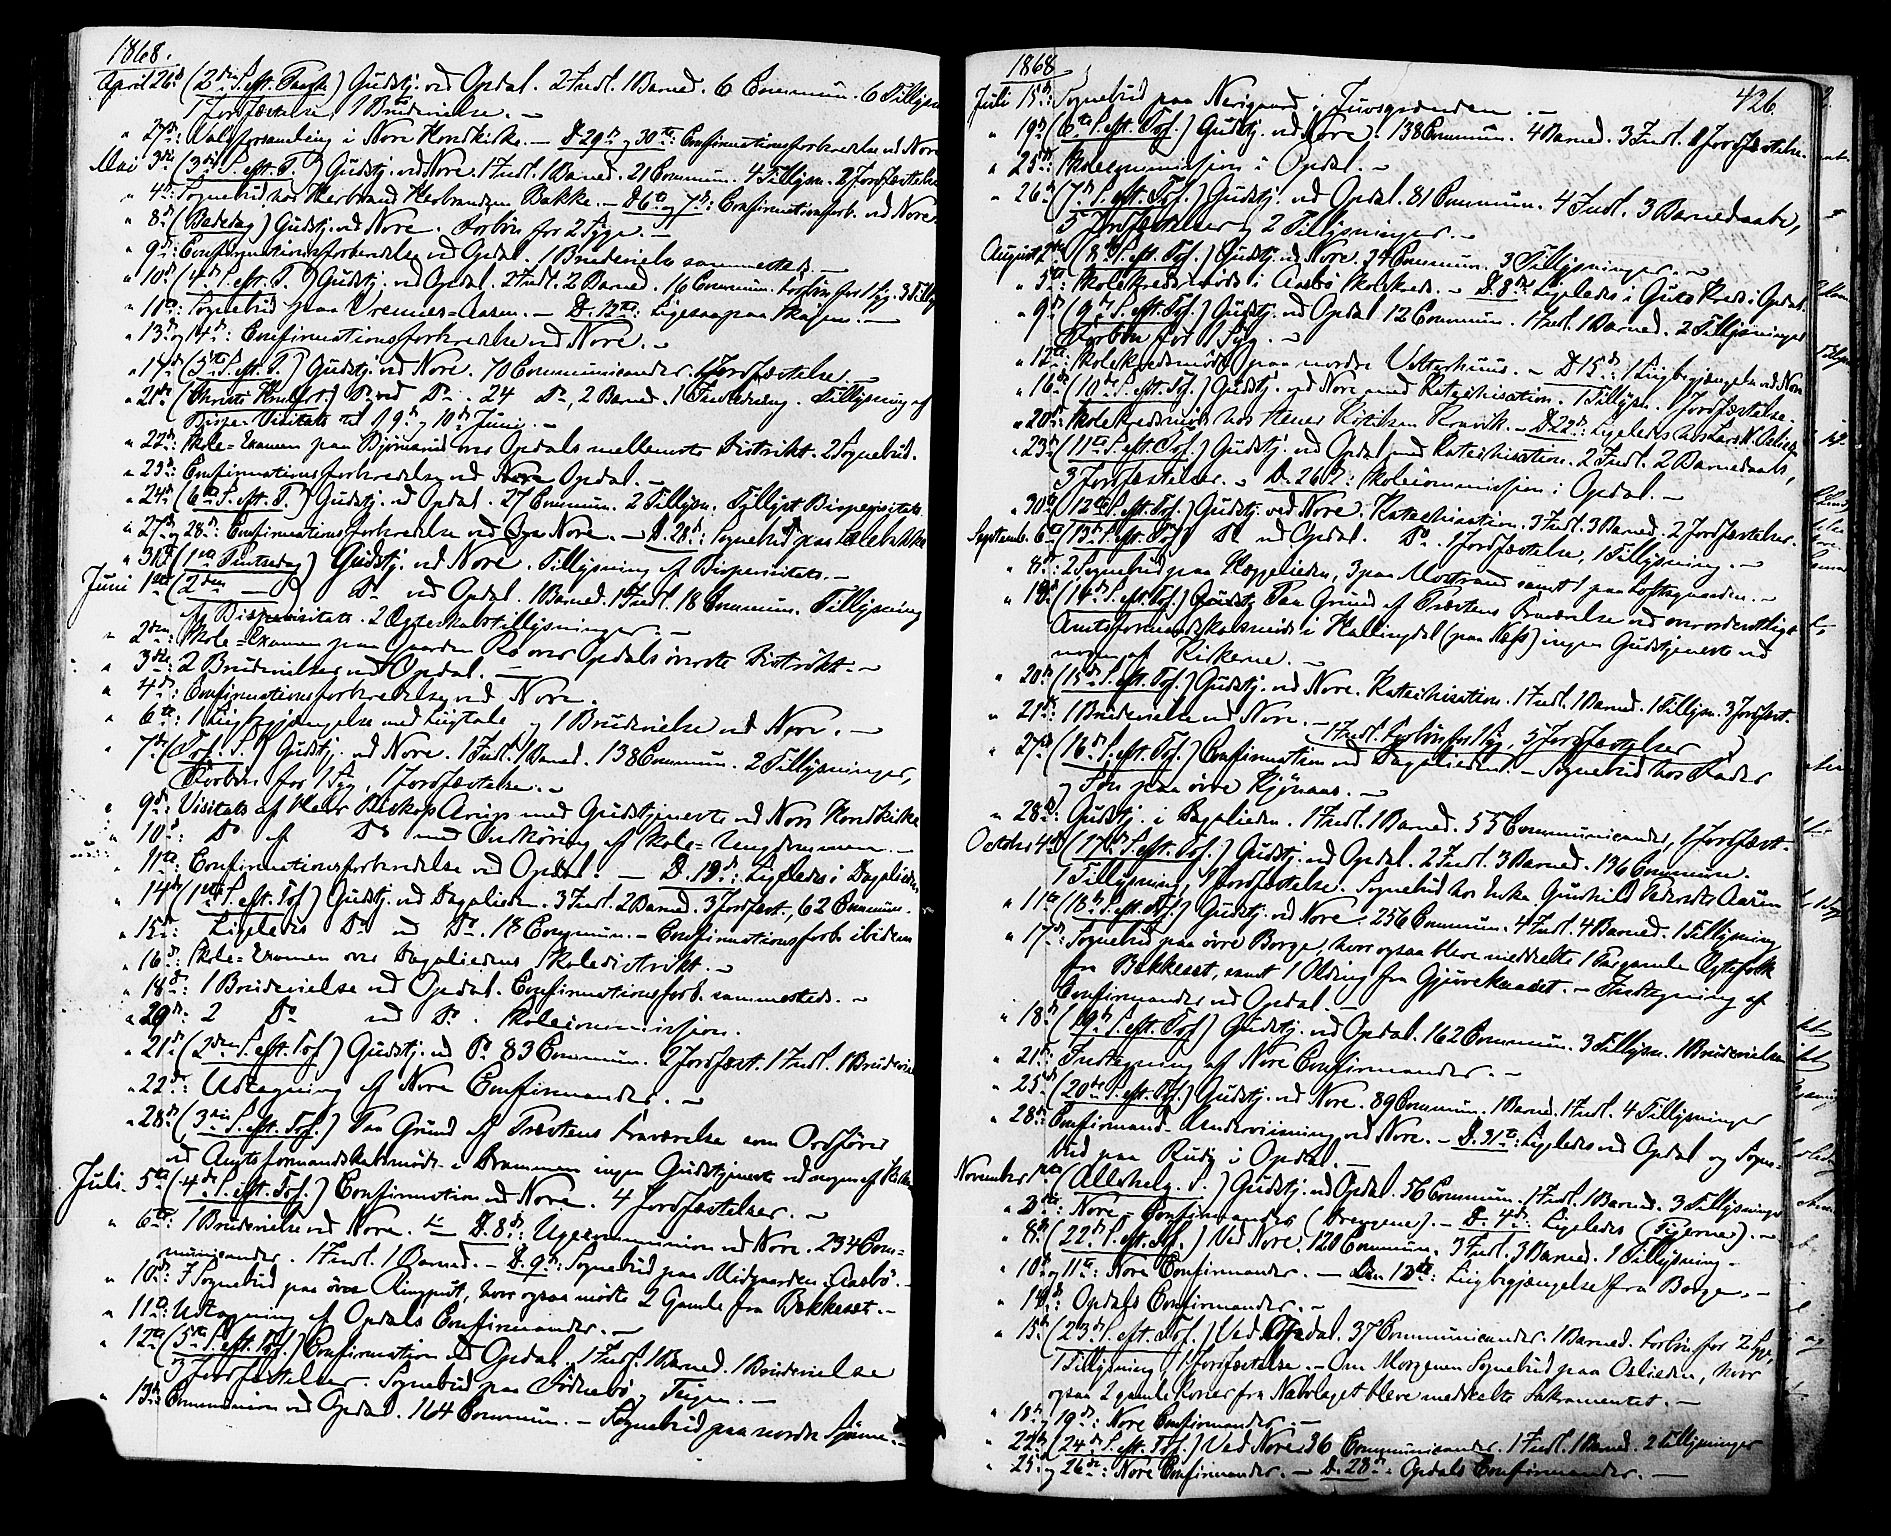 1868.
April 26d (2den S. eft. Paaske) Gudstj. ved Opdal. 2 Indl. 1 Barned. 6 Commun. 6 Tillysn.
1 Jordfæstelse, 1 Brudevielse. —
" 27d: Valgforsamling i Nore Hovedkirke. — D. 29d og 30te: Confirmationsforberedelse ved Nore
Mai 3die (3die S. eft. P.) Gudstj. ved Nore. 1 Indl. 1 Barned. 21 Commun. 4 Tillysn. 2 Jordfæstelse
" 4d: Sognebud hos Herbrand Herbrandsen Bakke. — D. 6te og 7d: Confirmationsforb. ved Nore
" 8d (Bededag) Gudstj. ved Nore. Forbøn for 2 Syge. —
" 9d: Confirmationsforberedelse ved Opdal. 1 Brudevielse sammesteds. —
" 10d (4de S. eft. P.) Gudstj. ved Opdal. 2 Indl. 2 Barned. 16 Commun. Forbøn for 1 Syg. 3 Tillys.
" 11te: Sognebud paa Vrennes-Aasen. — D. 12te: Ligesaa paa Skagen. —
" 13d og 14d: Confirmationsforberedelse ved Nore. —
" 17d (5te S. eft. P.) Gudstj. ved Nore. 70 Communicander. 1 Jordfæstelse. —
" 21de (Christi Himlfart.) Do ved Do. 24 Do, 2 Barned. 1 Indledning. Tillysning af
Bispe-Visitats til 9d og 10d Juni. —
" 22d: Skole-Examen paa Bjørnerud over Opdals mellemste Distrikt. 2 Sognebud.
" 23d: Confirmationsforberedelse ved Opdal. —
" 24d (6te S. eft. P.) Gudstj. ved Opdal. 27 Commun. 2 Tillysn. Tillyst Bispevisitats.
" 27d og 28d: Confirmationsforberedelse ved Nore. — D. 28d: Sognebud paa
" 31d (1ste Pintsedag) Gudstj. ved Nore. Tillysning af Bispevisitats. —
Juni 1ste (2den — ) Do ved Opdal. 1 Barned. 1 Indl. 18 Commun. Tillysning
af Bispevisitats. 2 Ægteskabstillysninger. —
" 2den Skole-Examen paa Gaarden Ro over Opdals øverste Distrikt. —
" 3die 2 Brudevielser ved Opdal. —
" 4de: Confirmationsforberedelse ved Nore.
" 6te: 1 Liigbegjængelse med Liigtale og 1 Brudevielse ved Nore. —
" 7de (Tref. S.) Gudstj. ved Nore. 1 Indl. 1 Barned. 138 Commun. 2 Tillysninger,
Forbøn for 1 Syg, 1 Jordfæstelse. —
" 9d: Visitats af Herr Biskop Arup med Gudstjeneste ved Nore Hovedkirke
" 10d: Do af Do med Overhøring af Skole-Ungdommen. —
" 11te: Confirmationsforberedelse ved Opdal. — D. 13d: Ligeledes i Dagalieden
" 14de (1ste S. eft. Tref.) Gudstj. ved Dagalieden. 3 Indl. 2 Barned. 3 Jordfæst., 62 Commun.
" 15d: Ligeledes Do ved Do. 18 Commun. — Confirmationsforb. ibidem
" 16d: Skole-Examen over Dagaliedens Skoledistrikt. —
" 18d: 1 Brudevielse ved Opdal. Confirmationsforb. sammesteds. —
" 20d: 2 Do ved Do. Skolecommission.
" 21d (2den S. eft. Tref.) Gudstj. ved Do 83 Commun. 2 Jordfæst. 1 Indl. 1 Brudevielse
" 22d: Udtagning af Nore Confirmander. —
" 28d (3die S. eft. Tref.) Paa Grund af Præstens Fraværelse som Ordfører
ved Amtsformandskabsmøde i Drammen ingen Gudstjeneste ved nogen af Kirkerne
Juli. 5te (4de S. eft. Tref.) Confirmation ved Nore. 4 Jordfæstelser. —
" 6te: 1 Brudevielse ved Nore. — D. 8d: Ugecommunion ved Nore. 234 Com-
municander. 1 Indl. 1 Barned. — D. 9d: Sognebud paa Midgaarden Aasbø. —
" 10d: 3 Sognebud paa øvre Ringput, hvor ogsaa mødte 2 Gamle fra Bakkeset. —
" 11te: Udtagning af Opdals Confirmander. —
" 12te (5te S. eft. Tref.) Confirmation ved Opdal. 1 Indl. 1 Barned. 1 Brudevielse
og 3 Jordfæstelser. Sognebud paa og Teigen. —
" 13de Communion ved Opdal. 164 Commun. — Sognebud paa nordre —
1868
426.
Juli 15d: Sognebud paa Nerigaard i Juvsgrenden. —
" 19d (6te S. eft. Tref.) Gudstj. ved Nore. 138 Commun. 4 Barned. 3 Indl. 1 Jordfæstelse.
" 25d: Skolecommission i Opdal. —
" 26d (7d S. eft. Tref.) Gudstj. ved Opdal. 81 Commun. 4 Indl. 3 Barnedaabe,
5 Jordfæstelser og 2 Tillysninger. —
August 2den (8d S. eft. Tref.) Gudstj. ved Nore. 34 Commun. 3 Tillysninger. —
" 5te Skolekredsmøde i Aasbø Skolekreds. — D. 8de Ligeledes i Kreds i Opdal.
" 9d (9d S. eft. Tref.) Gudstj. ved Opdal. 12 Commun. 1 Indl. 1 Barned. 2 Tillysninger
Forbøn for 1 Syg. —
" 12te: Skolekredsmøde paa nordre Vetterhuus. — D. 15d: 1 Liigbegjængelse ved Nore
" 16de (10de S. eft. Tref.) Gudstj. ved Nore med Katechisation. 1 Tillysn. 1 Jordfæstelse.
" 20d: Skolekredsmøde hos Stener Kravik. — D. 22d: Ligeledes hos Lars
" 23d (11te S. eft. Tref.) Gudstj. ved Opdal med Katechisation. 2 Indl. 2 Barnedaab,
3 Jordfæstelser. — D. 26d: Skolecommission i Opdal. —
" 30te (12te S. eft. Tref.) Gudstj. ved Nore. Katechisation. 3 Indl. 3 Barned. 2 Jordfæstelser.
Septemb. 6te (13d S. eft. Tref.) Do ved Opdal. Do. 1 Jordfæstelse, 1 Tillysning. —
" 8d: 2 Sognebud paa Hæggelieden, 3 paa Mostrand samt 1 paa Loftsgaarden. —
" 13d: (14d S. eft. Tref.) Paa Grund af Præstens Fraværelse ved overordentligt
Amtsformandskabsmøde i Hallingdal (paa Næss) ingen Gudstjeneste ved
nogen af Kirkerne. —
" 20d (15d S. eft. Tref.) Gudstj. ved Nore. Katechisation. 1 Indl. 1 Barned. 1 Tillysn. 3 Jordfæst.
" 21d: 1 Brudevielse ved Nore. —
1 Indl. Forbøn for 1 Syg, 5 Jordfæstelser
" 27d (16d S. eft. Tref.) Confirmation ved Dagalieden. — Sognebud hos Fader
og Søn paa øvre Kjønaas. —
" 28d: Gudstj. i Dagalieden. 1 Indl. 1 Barned. 55 Communicander, 1 Jordfæst.
October 4de (17de S. eft. Tref.) Gudstj. ved Opdal. 2 Indl. 3 Barned. 136 Commun.
1 Tillysning, 1 Jordfæstelse. Sognebud hos Enke Gunhild Pedersdtr Aasen
" 11te (18d S. eft. Tref.) Gudstj. ved Nore. 256 Commun. 4 Indl. 4 Barned. 1 Tillysning
" 17d: Sognebud paa øvre Borge, hvor ogsaa bleve meddelte 1 Par gamle Ægtefolk
fra Bakkeset, samt 1 Olding fra Gjuvekaaset. — Indtegning af
Confirmander ved Opdal. —
" 18d (19d S. eft. Tref.) Gudstj. ved Opdal. 162 Commun. 3 Tillysn. 1 Brudevielse
" 21d: Indtegning af Nore Confirmander. —
" 25d (20de S. eft. Tref.) Gudstj. ved Nore. 89 Commun. 1 Barned. 1 Indl. 4 Tillysninger
" 28d: Confirmand-Underviisning ved Nore. — D. 31te: Ligeledes ved Opdal og Sogne-
bud paa Rudi i Opdal. —
November 1ste (Allehelg. S.) Gudstj. ved Opdal. 56 Commun. 1 Indl. 1 Barned. 3 Tillysninger
" 3die: Nore-Confirmander (Drengene). — D. 4d: Ligeledes (Pigerne). —
" 8d (22d S. eft. Tref.) Ved Nore. 120 Commun. 3 Indl. 3 Barned. 1 Tillysning —
" 10d og 11te: Nore Confirmander. — D. 13de: Liigbegjængelse fra Borge. —
" 14d: Opdals Confirmander. —
" 15d (23d S. eft. Tref.) Ved Opdal. 37 Communicander. 1 Barned. Forbøn for 2 Syge,
1 Tillysning, 1 Jordfæstelse. — Om Morgenen Sognebud paa Oslieden, hvor
ogsaa 2 gamle Koner fra Nabolaget bleve meddeelte Sakramentet. —
" 18d og 19d: Nore Confirmander. —
" 22d (24d S. eft. Tref.) Ved Nore 36 Communicander. 1 Indl. 1 Barned. 2 Tillysninger
" 25 og 26de: Nore Confirmander. — D. 28d: Opdals Confirmander. —